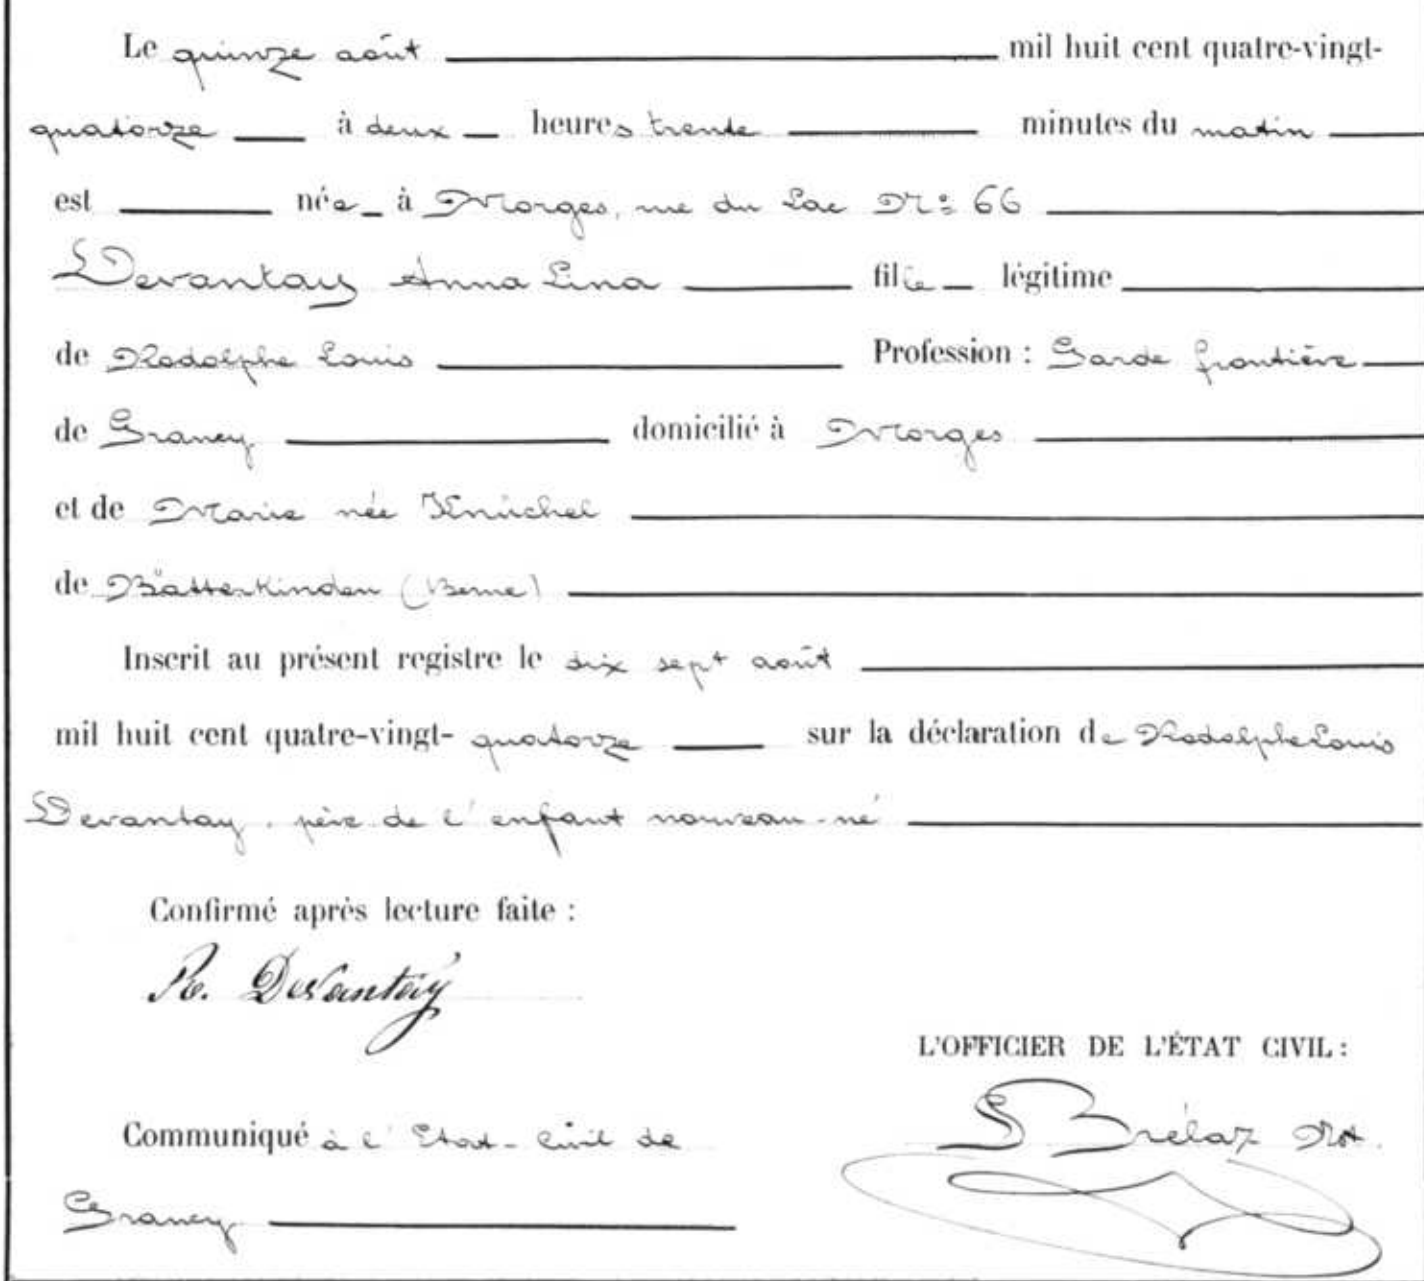 Le quinze août mil huit cent quatre-vingt-
quatorze à deux heures trente minutes du matin
est née à Morges, rue du Lac No: 66
Devantay Anna Lina fille légitime
de Rodolphe Louis Profession : Garde frontière
de Grancy domicilié à Morges
et de Marie née Knüchel
de Bätterkinden (Berne)
Inscrit au présent registre le dix sept août
mil huit cent quatre-vingt- quatorze sur la déclaration de Rodolphe Louis
Devantay, père de l'enfant nouveau-né
Confirmé après lecture faite :
R. Devantay
L'OFFICIER DE L'ÉTAT CIVIL :
Communiqué à l'Etat-Civil de
Brélaz Not.
Grancy